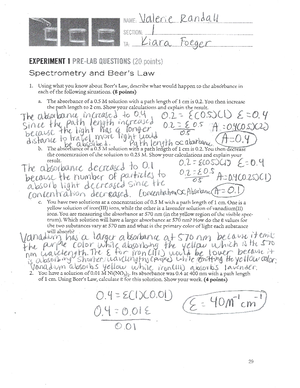 NAME Valerie Randall
SECTION
TA Kiara Foeger
EXPERIMENT 1 PRE-LAB QUESTIONS (20 points)
Spectrometry and Beer's Law
1. Using what you know about Beer's Law, describe what would happen to the absorbance in
each of the following situations. (8 points)
a. The absorbance of a 0.5 M solution with a path length of 1 cm is 0.2. You then increase
the path length to 2 cm. Show your calculations and explain your result.
The absorbance increased to 0.4 0.2 = ε(0.5)(1) ε=0.4
Since the path length increased 0.2 = ε 0.5 A=0.4(0.5)(2)
because the light has a longer 0.5 0.5
distance to travel more light would A=0.4
be absorbed. Path length ∝ absorbance
b. The absorbance of a 0.5 M solution with a path length of 1 cm is 0.2. You then decrease
the concentration of the solution to 0.25 M. Show your calculations and explain your
result.
The absorbance decreased to 0.1 0.2=ε(0.5)(1) ε=0.4
because the number of particles to 0.2=ε0.5 A=0.4(0.25)(1)
absorb light decreased since the 0.5 0.5
concentration decreased. Concentration ∝ Absorbance A=0.1
c. You have two solutions at a concentration of 0.5 M with a path length of 1 cm. One is a
yellow solution of iron(III) ions, while the other is a lavender solution of vanadium(II)
ions. You are measuring the absorbance at 570 nm (in the yellow region of the visible spectrum).
Which solution will have a larger absorbance at 570 nm? How do the ε values for
the two substances vary at 570 nm and what is the primary color of light each substance
will absorb?
Vanadium has a larger absorbance at 570 nm because it emits
the purple color while absorbing the yellow which is the 570
nm wavelength. The ε for iron(III) would be lower because it
is absorbing shorter wavelengths while emitting the yellow color.
Vanadium absorbs yellow while iron(III) absorbs lavender.
2. You have a solution of 0.01 M Ni(NO₃)₂. Its absorbance was 0.4 at 400 nm with a path length
of 1 cm. Using Beer's Law, calculate ε for this solution. Show your work. (4 points)
0.4=ε(1)(0.01)
0.4=0.01ε
0.01
ε=40M⁻¹cm⁻¹